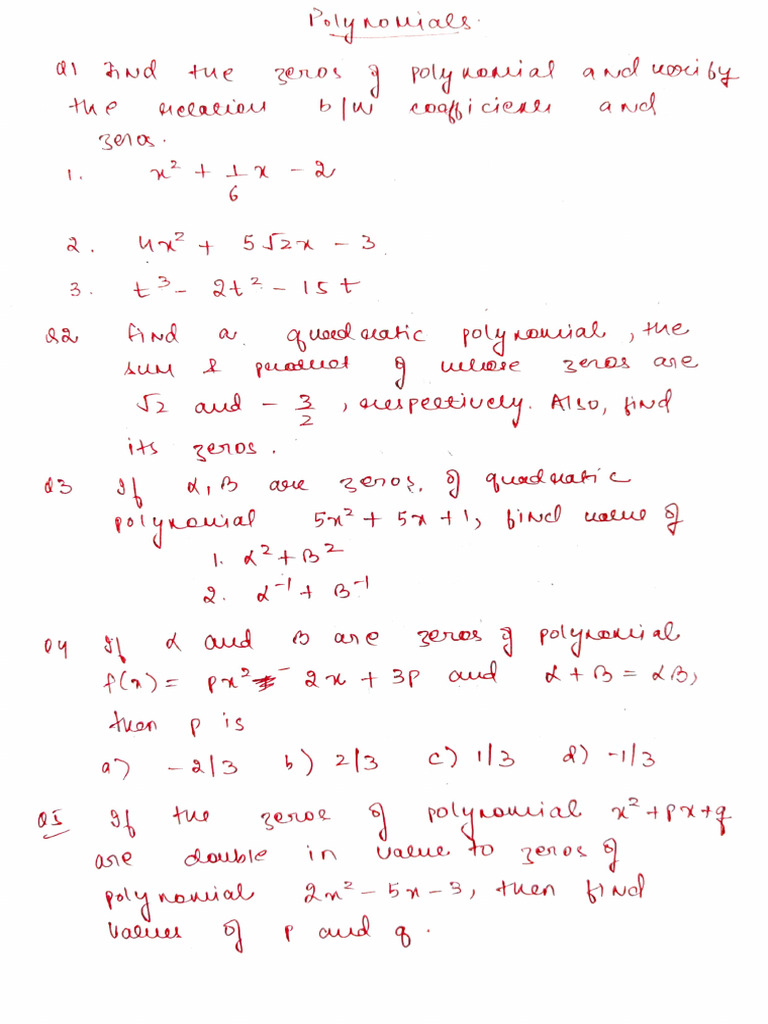 Polynomials.
Q1 Find the zeros of polynomial and verify
the relation b/w coefficients and
zeros.
1. x² + 1/6 x - 2
2. 4x² + 5√2x - 3
3. t³ - 2t² - 15t
Q2 Find a quadratic polynomial, the
sum & product of whose zeros are
√2 and - 3/2, respectively. Also, find
its zeros.
Q3 If α, β are zeros of quadratic
polynomial 5x² + 5x + 1, find value of
1. α² + β²
2. α⁻¹ + β⁻¹
Q4 If α and β are zeros of polynomial
f(x) = px² - 2x + 3p and α + β = αβ,
then p is
a) -2/3 b) 2/3 c) 1/3 d) -1/3
Q5 If the zeros of polynomial x² + px + q
are double in value to zeros of
polynomial 2x² - 5x - 3, then find
values of p and q.